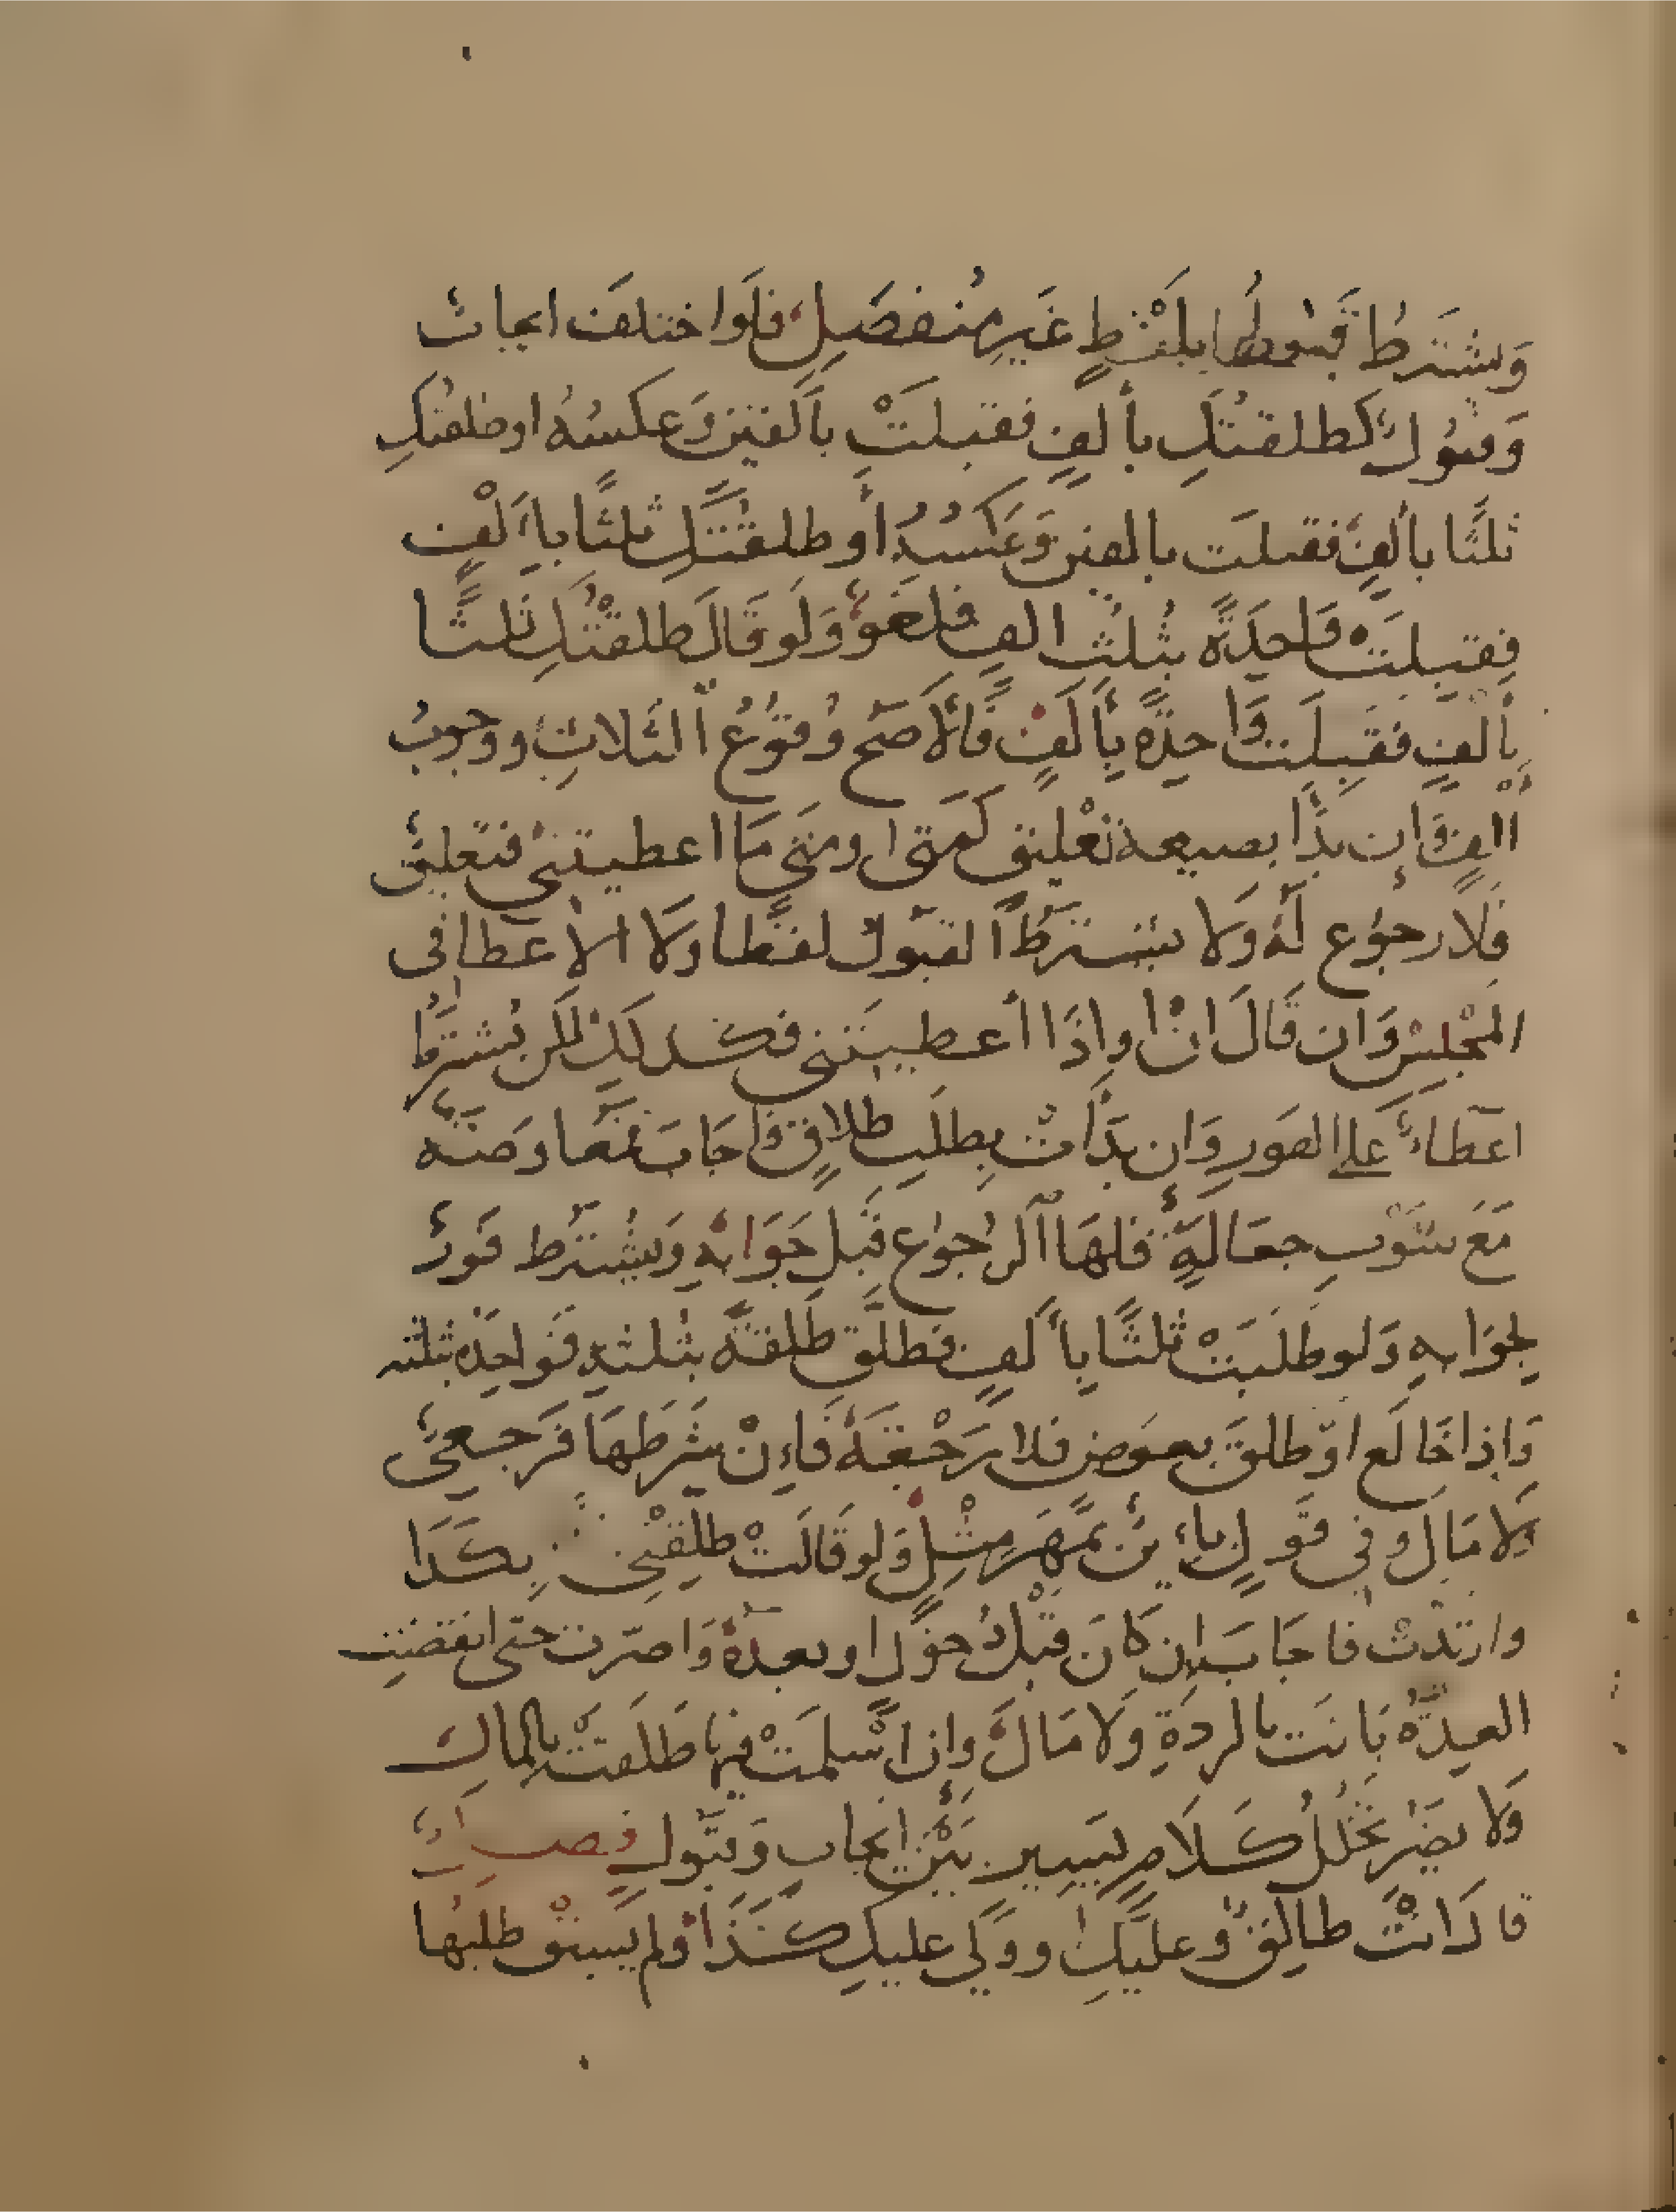 وَيشترطُ قبُولُها بلَفْظٍ غَيرِ مُنفصَلٍ فلَوا ختلفَ ايجابٌ
وَقبُولٌ كطلقتُكِ بألفٍ فقبلَتْ بألفَينِ وَعكسُهُ اوطلقتُكِ
ثلثًا بألفٍ فقبلَت بالفين وَعَكسُهُ أو طلقتُكِ ثلثًا باَلْفٍ
فقبلَتْ وَاحدَةً بثُلثِ الفٍ فلغوٌ وَلَو قَالَ طلقتُكِ ثلثًا
بِالفٍ فقَبلَت وَاحدةً بِألَفٍ فَالأصَح وُقوُعُ الثَلاثِ ووجوبُ
الفٍ وَإن بدَا بصيغة تعْليق كَمتى اومتَى مَا اعطيتنِي فتعليقٌ
فَلا رجوُع لَهُ وَلا يشترطُ القبُولُ لفظًا وَلا الاعطا في
المجْلسِ وَان قَالَ انْ اواذَا أعطيتَنى فكذلكَ لكن يُشترطُ
اعطاءٌ علي الفَورِ وَان بدَأتْ بِطلَبِ طلاقٍ فاجَابَ فمعاوضَةٌ
مَعَ شَوْبِ جعَالَةٍ فلهَا الرجُوع قَبلَ جَوَابهِ وَيشُترَط فَورٌ
لجوَابهِ وَلوطلَبَتْ ثلثًا بِألفٍ فطلَّق طلقةً بثلثهِ فوَاحِدَة بثلثه
وَاذا خَالَع اوْطلقَ بعوَضٍ فلا رَجْعَةَ فَاءِنْ شرَطهَا فَرَجعيٌ
وَلا مَالَ وفي قوَلٍ باءينٌ بمَهَرِ مثِلٍ وَلو قَالَتْ طلِقنِي بكَذَا
وارتدَّتْ فاجَابَ إن كَانَ قبْلَ دخوُل اوبعدَهُ وَاصرّت حتى انقضت
العدّةُ بَانَت بالردَةِ وَلا مَالَ وان اسْلمَتْ فيها طَلَقتْ بالمال
وَلا يضرُ تخَللُ كَلَامٍ يَسيرٍ بَيْنَ إيجَابٍ وَقبَولٍ فصلٌ
قالَ انْتَ طالقٌ وعليَكِ اوولي عليكِ كذَا ولم يَسبقْ طلبُها